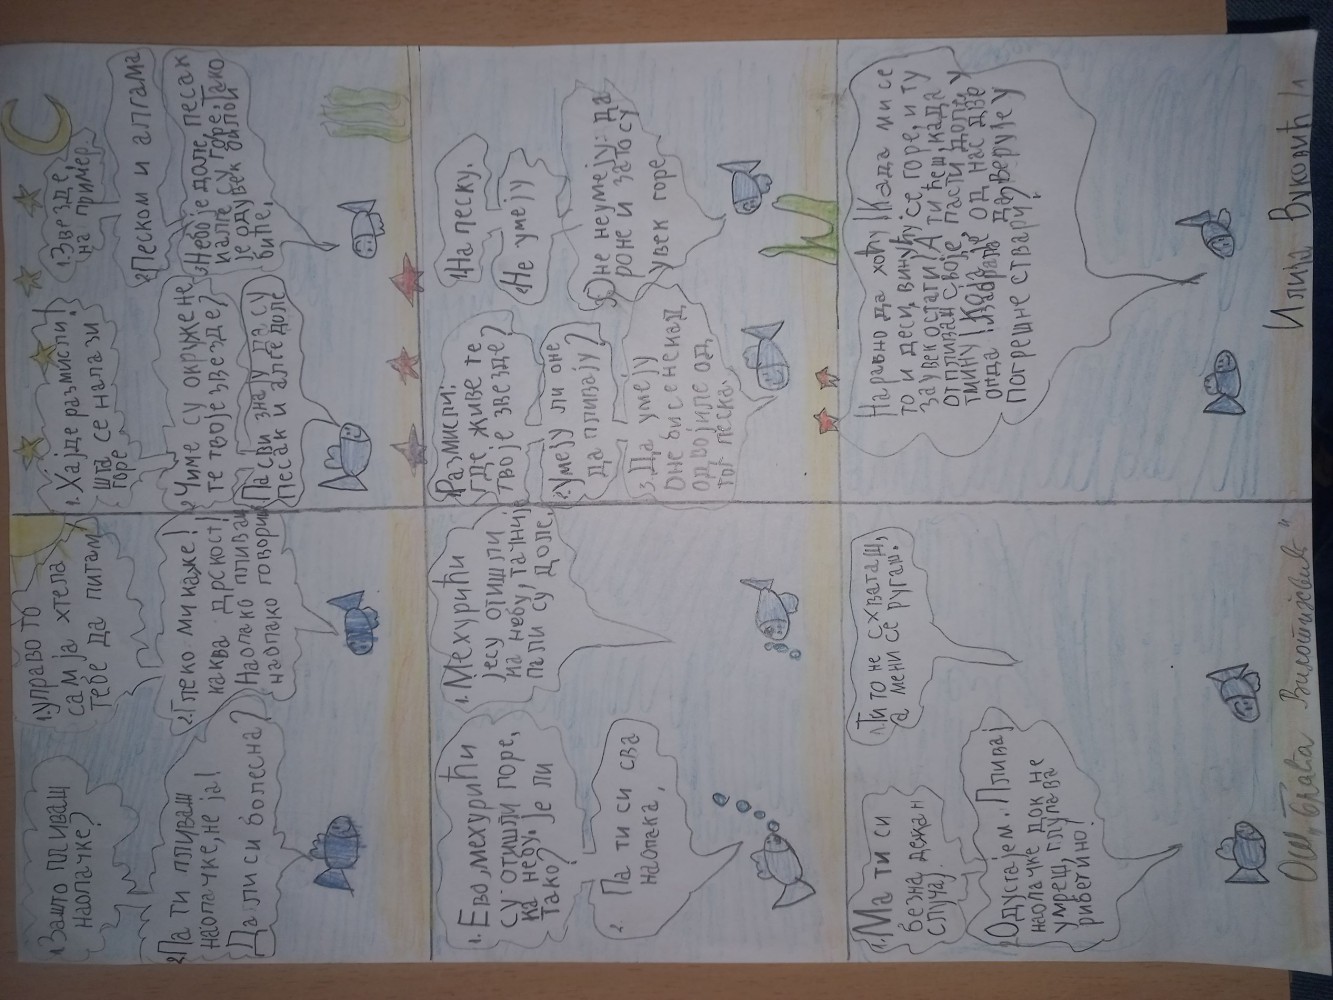 1. Зашто пливаш
наопачке?
2. Па ти пливаш
наопачке, не ја!
Да ли си болесна?
1. управо то
сам ја хтела
тебе да питам
2. Глеко ми каже!
каква дрскост!
Наопако пливаш
наопако говориш
1. Хајде размисли!
шта се налази
горе
2. Чиме су окружене
те твоје звезде?
Па сви знају да су
песак и алге доле
1. Звезде,
на пример.
2. Песком и алгама
3. Небо је доле, песак
и алге су горе. Тако
је одувек било и
биће.
1. Ево, мехурићи
су отишли горе,
ка небу. је ли
тако?
2. Па ти си сва
наопака.
1. Мехурићи
јесу отишли
ка небу, тачније
пали су доле.
1. Размисли:
где живе те
твоје звезде?
2. Умеју ли оне
да пливају?
3. Да умеју
оне би се некад
одвојиле од
тог песка.
1. На песку.
2. Не умеју
3. Оне неумеју да
роне и зато су
увек горе
1. Ма ти си
безна дежан
случај.
2. Одустајем. Пливај
наопачке док не
умреш, глупава
рибетино!
1. Ти то не схваташ,
а мени се ругаш.
Наравно да хоћу! Када ми се
то и деси, винућу се горе, и ту
заувек остати! А ти ћеш, када
отпливаш своје, пасти доле, у
тмину!
онда
погрешне ствари?
Илија Вуковић I1
ОШ,,